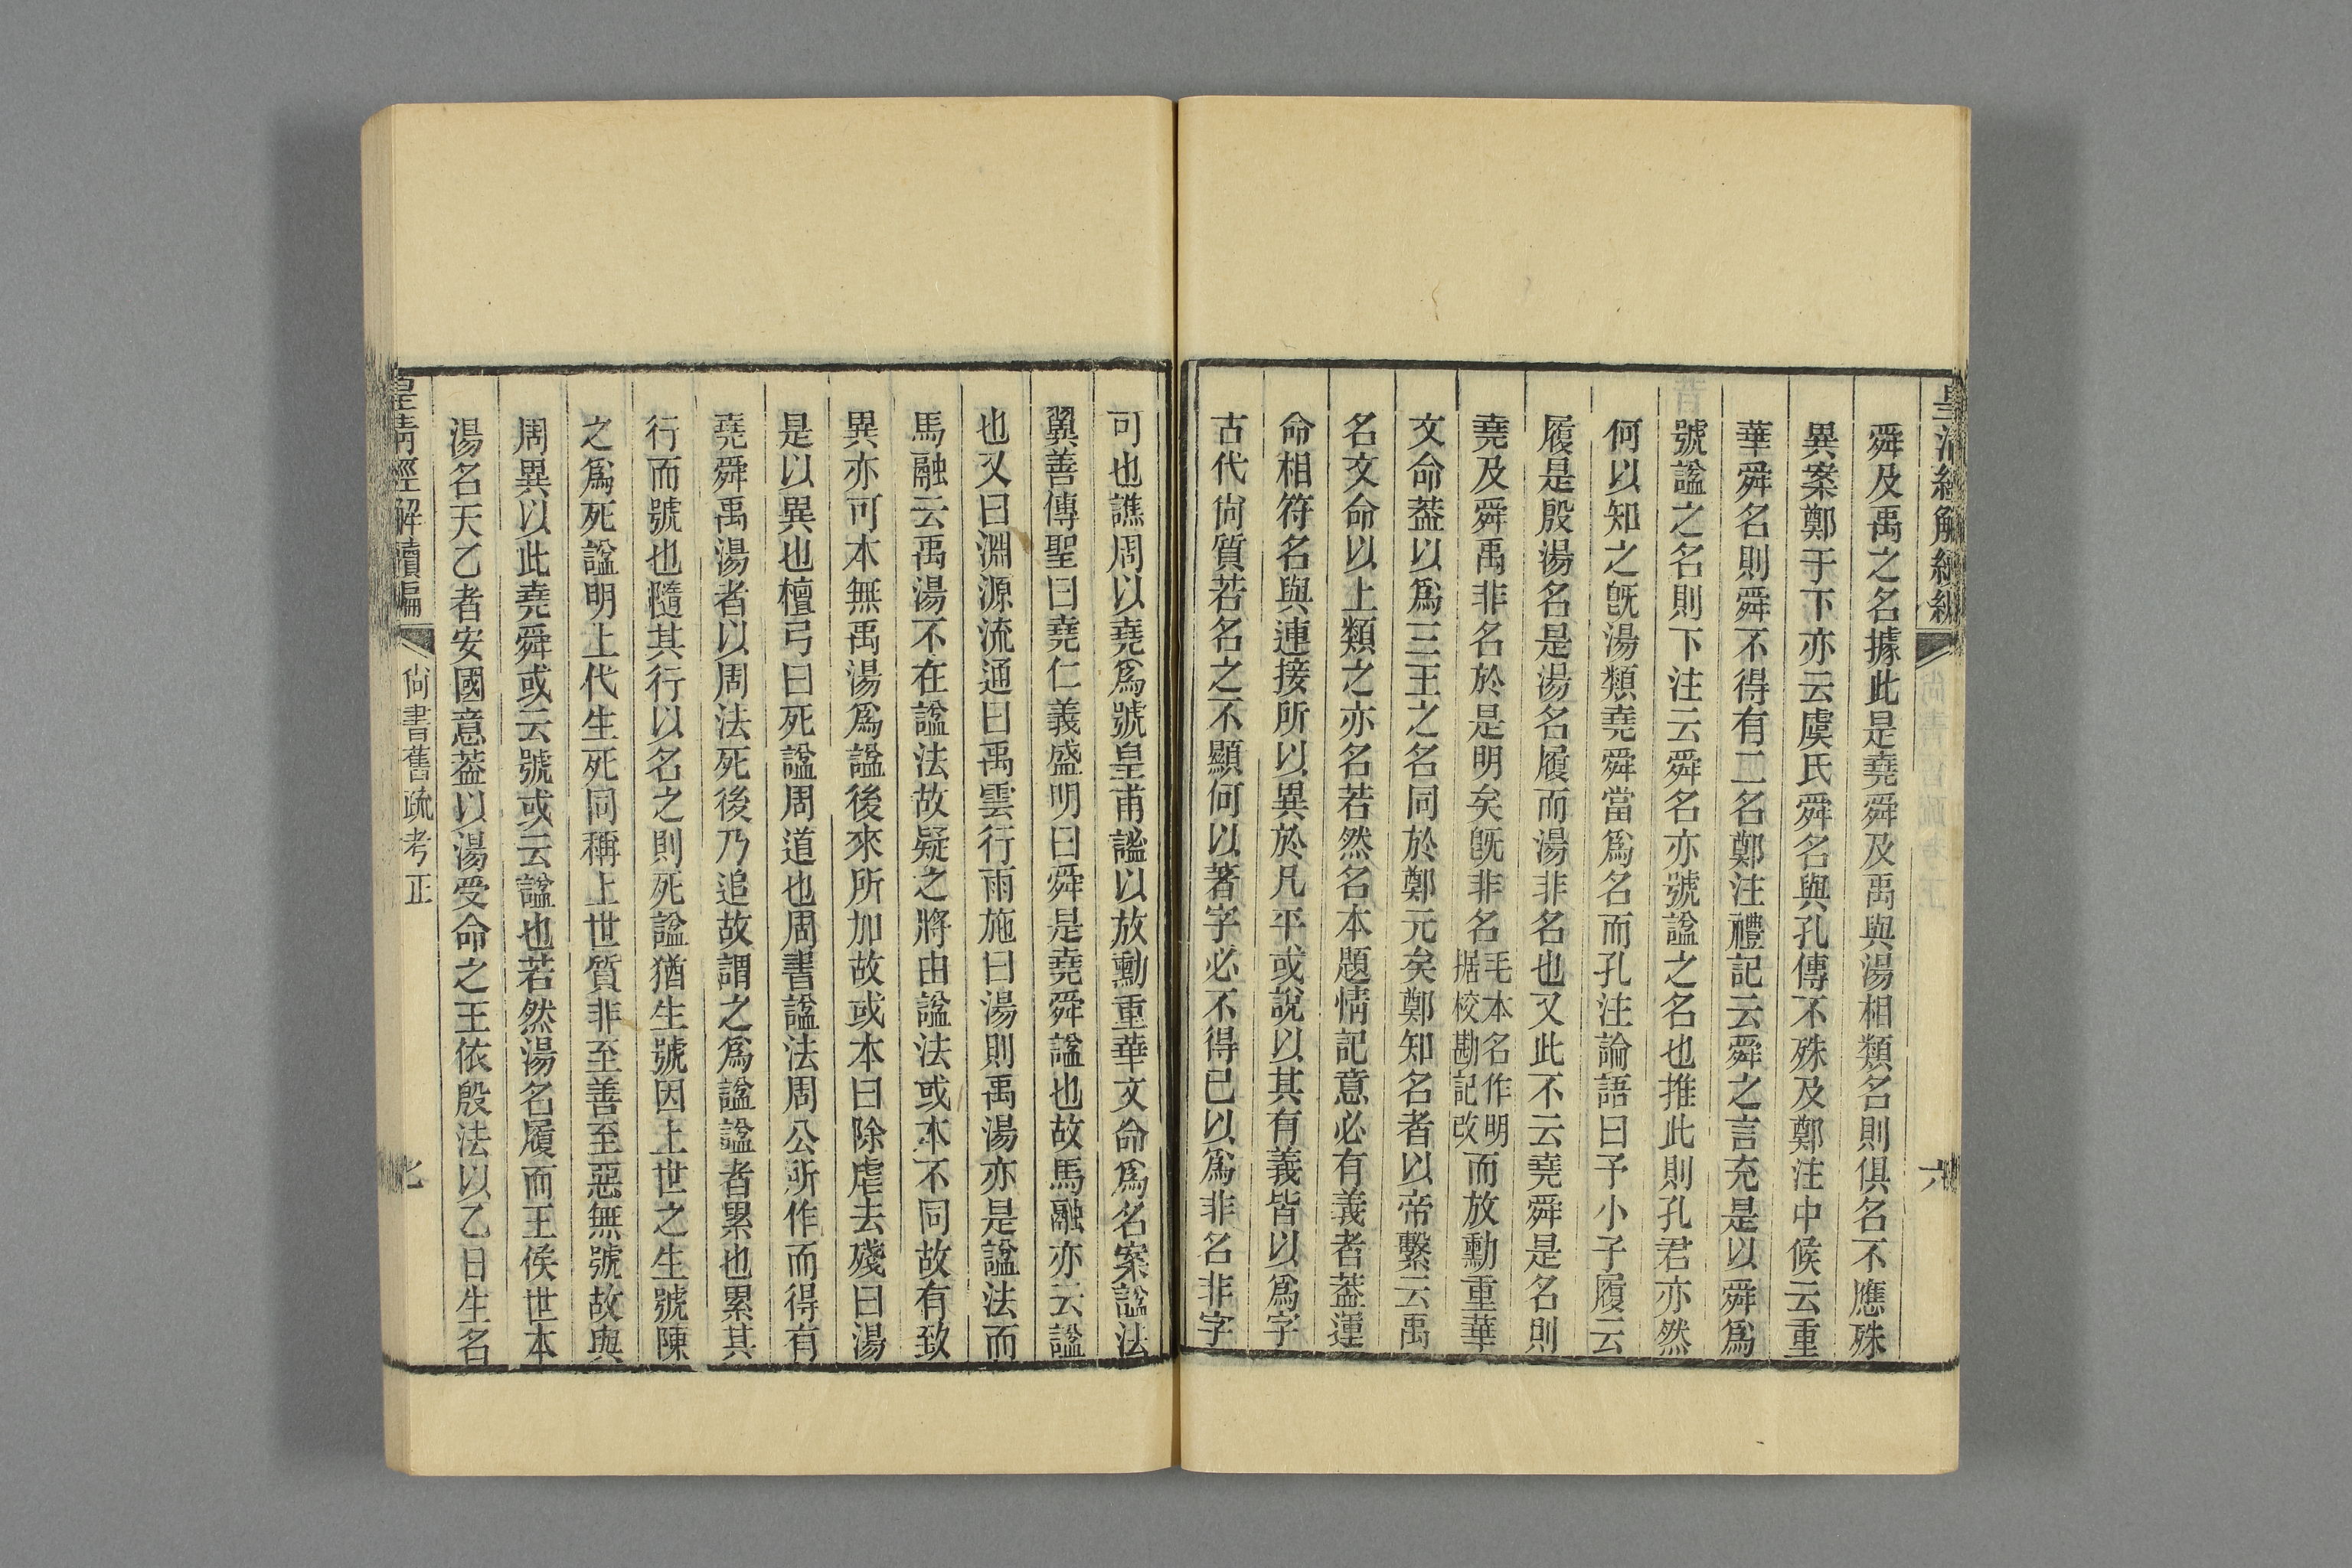 舜及禹之名據此是堯舜及禹與湯相類名則俱名不應殊
異案鄭于下亦云虞氏舜名與孔傳不殊及鄭注中候云重
華舜名則舜不得有二名鄭注禮記云舜之言充是以舜爲
號諡之名則下注云舜名亦號諡之名也推此則孔君亦然
何以知之旣湯類堯舜當爲名而孔注論語曰予小子履云
履是殷湯名是湯名履而湯非名也又此不云堯舜是名則
堯及舜禹非名於是明矣旣非名毛本名作明据校勘記改而放勳重華
文命葢以爲三王之名同於鄭元矣鄭知名者以帝繫云禹
名文命以上類之亦名若然名本題情記意必有義者葢運
命相符名與連接所以異於凡平或說以其有義皆以爲字
古代尙質若名之不顯何以著字必不得已以爲非名非字
可也譙周以堯爲號皇甫謐以放勳重華文命爲名案諡法
翼善傳聖曰堯仁義盛明曰舜是堯舜諡也故馬融亦云諡
也又曰淵源流通曰禹雲行雨施曰湯則禹湯亦是諡法而
馬融云禹湯不在諡法故疑之將由諡法或本不同故有致
異亦可本無禹湯爲諡後來所加故或本曰除虐去殘曰湯
是以異也檀弓曰死諡周道也周書諡法周公所作而得有
堯舜禹湯者以周法死後乃追故謂之爲諡諡者累也累其
行而號也隨其行以名之則死諡猶生號因上世之生號陳
之爲死諡明上代生死同稱上世質非至善至惡無號故與
周異以此堯舜或云號或云諡也若然湯名履而王侯世本
湯名天乙者安國意葢以湯受命之王依殷法以乙日生名
皇清經解續編 尙書舊疏考正